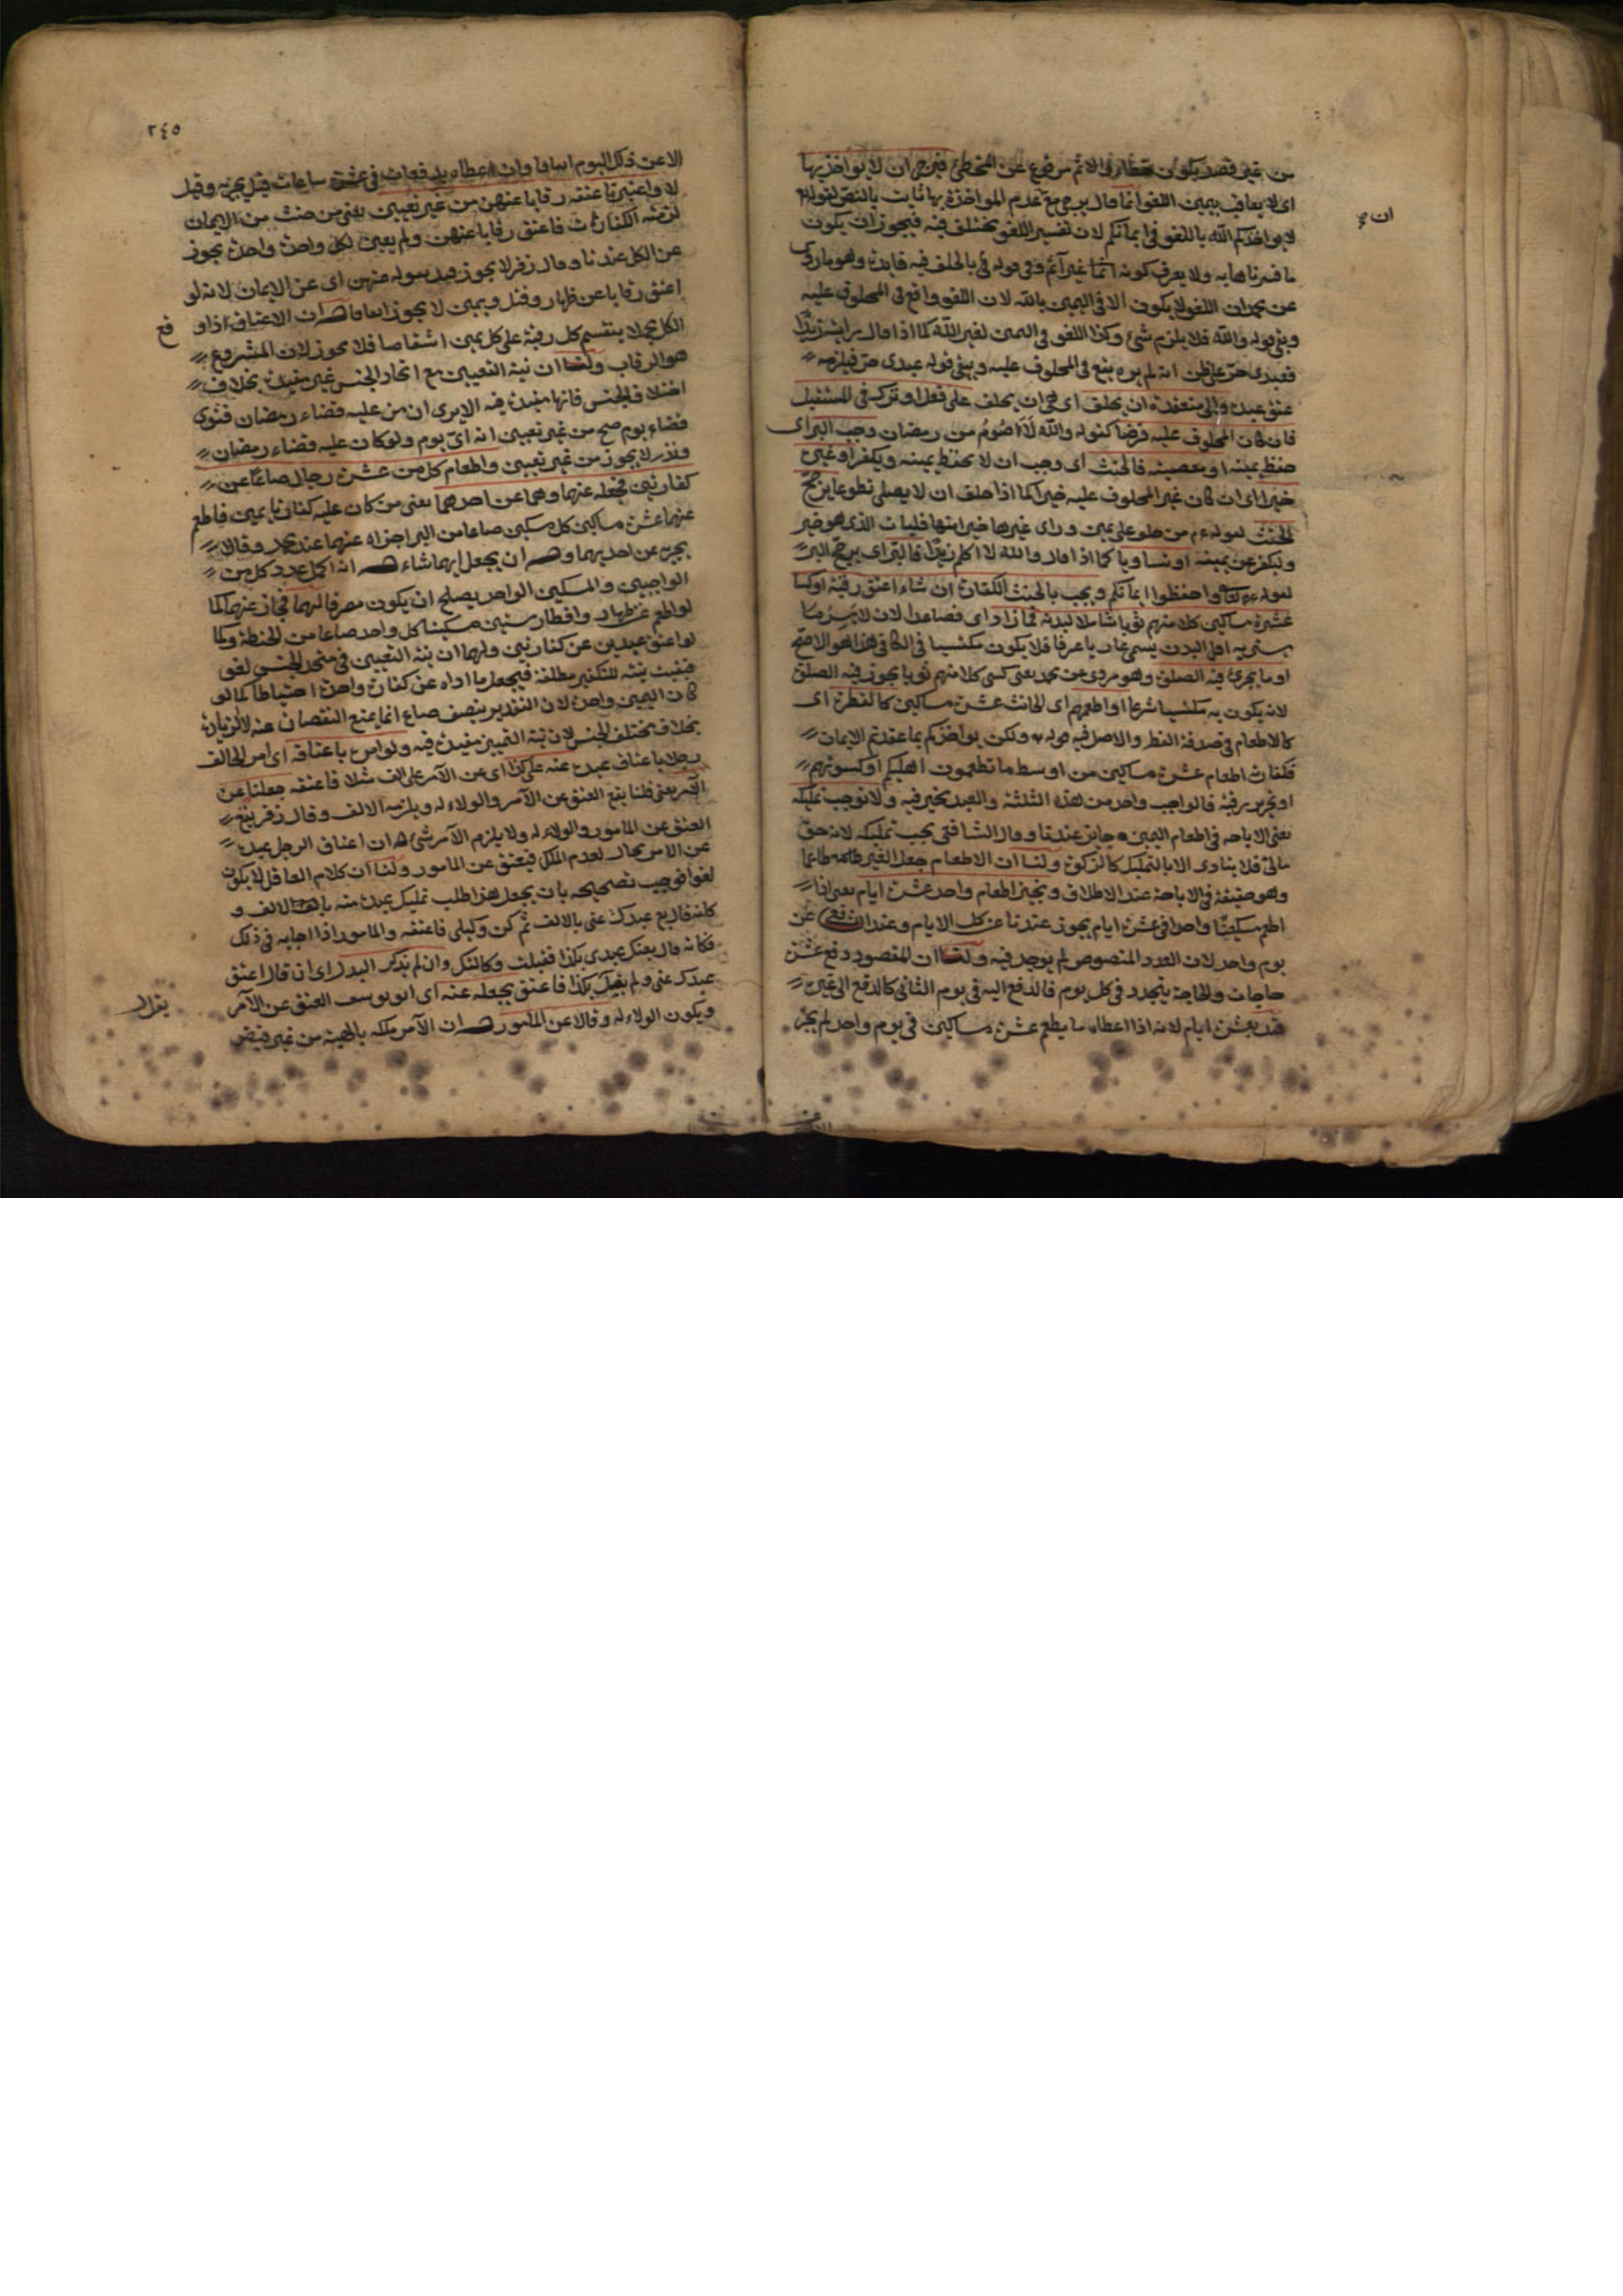 من غير قصد يكون خطأ والاثم مرفوع عن المخطئ فنرجو ان لا يؤاخذ بها
اى لا يعاقب بيمين اللغو انما قال يرجى مع عدم المؤاخذة بها ثابت بالنص لقوله تعالى
لا يؤاخذكم الله باللغو فى ايمانكم لان تفسير اللغو مختلف فيه فيجوز ان يكون
ان
ما فسرناها به ولا يعرف كونه غير اثم وفى قوله بالحلف فيه فايدة وهو ما روى
عن محمد ان اللغو لا يكون الا فى اليمين بالله لان اللغو واقع فى المحلوف عليه
وبقى قوله والله فلا يلزم شئ وكذا اللغو فى اليمين لغير الله كما اذا قال زيدا
فعبدى حر على ظن انه لم يره يقع فى المحلوف عليه وبقى قوله عبدى حر فيلزمه
عتق عبده والى منعقدة ان يحلف اى هى ان يحلف على فعل او تركه فى المستقبل
فان كان المحلوف عليه فرضا كقوله والله لاصوم من رمضان وجب البر اى
حفظ يمينه او معصية فالحنث اى وجب ان لا يحفظ يمينه ويكفر او غيره
خيرا اى ان كان غير المحلوف عليه خيرا كما اذا حلف ان لا يصلى تطوعا يرجح
الحنث لقوله من حلف على يمين وراى غيرها خيرا منها فليأت الذى هو خير
وليكفر عن يمينه او تساويا كما اذا قال والله لا اكلم زيدا فالبر اى يرجح البر
لقوله واحفظوا ايمانكم ويجب بالحنث الكفارة ان شاء اعتق رقبة او كسا
عشرة مساكين كلا منهم ثوبا شاملا لبدنه فما زاد اى فصاعدا لان لابس ما
يستر به اقل البدن يسمى عاريا عرفا فلا يكون مكتسيا فى الكافى هذا هو الاصح
او ما يجزئ فيه الصلوة وهو مروى عن محمد يعنى كسى كلا منهم ثوبا يجوز فيه الصلوة
لانه يكون به مكتسيا شرعا او اطعمهم اى الحانث عشرة مساكين كالفطرة اى
كالاطعام فى صدقة الفطر والاصل فيه قوله ولكن يؤاخذكم بما عقدتم الايمان
فكفارته اطعام عشرة مساكين من اوسط ما تطعمون اهليكم او كسوتهم
او تحرير رقبة فالواجب واحد من هذه الثلثة والعبد مخير فيه ولا نوجب تمليكه
يعنى الاباحة فى اطعام اليمين جايز عندنا وقال الشافعى يجب تمليكه لانه حق
مالى فلا يتادى الا بالتمليك كالزكوة ولنا ان الاطعام جعل الغير طاعما
وهو حقيقة فى الاباحة عند الاطلاق ونجيز اطعام واحد عشرة ايام يعنى اذا
اطعم مسكينا واحدا فى عشرة ايام يجوز عندنا عن كل الايام وعند الشافعى عن
يوم واحد لان العدد المنصوص لم يوجد فيه ولنا ان المقصود دفع عشر
حاجات والحاجة يتجدد فى كل يوم فالدفع اليه فى يوم الثانى كالدفع الى غيره
قيد بعشرة ايام لانه اذا اعطاه ما يطعم عشرة مساكين فى يوم واحد لم يجز
٢٤٥
الا عن ذلك اليوم اتفاقا وان اعطاه بدفعات فى عشر ساعات قيل يجزيه وقيل
لا واعتبرنا عتقه رقابا عنهن من غير تعيين يعنى من حنث من الايمان
لزمته الكفارات فاعتق رقابا عنهن ولم يعين لكل واحدة واحدة يجوز
عن الكل عندنا وقال زفر لا يجوز قيد بقوله عنهن اى عن الايمان لانه لو
اعتق رقابا عن ظهار وقتل ويمين لا يجوز اتفاقا له ان الاعتاق اذا وقع
الكل يجملا ينقسم كل رقبة على كل يمين اشقاصا فلا يجوز لان المشروع
هو الرقاب ولنا ان نية التعيين مع اتحاد الجنس غير مفيدة بخلاف
اختلاف الجنس فانها مفيدة فيه الا يرى ان من عليه قضاء رمضان فنوى
قضاء يوم صح من غير تعيين انه اى يوم ولو كان عليه قضاء رمضان
ونذر لا يجوز من غير تعيين واطعام كل من عشرة رجال صاعا عن
كفارتين نجعله عنهما وهما عن احدهما يعنى من كان عليه كفارتا يمين فاطعم
عنهما عشرة مساكين كل مسكين صاعا من البر اجزاه عنهما عند محمد وقالا
يجزيه عن احديهما وله ان يجعل ايهما شاء له انه اكمل عدد كل من
الواجبين والمسكين الواحد يصلح ان يكون مصرفا لهما فجاز عنهما كما
لو اطعم عن ظهار وافطار ستين مسكينا كل واحد صاعا من الحنطة وكما
لو اعتق عبدين عن كفارتين ولهما ان نية التعيين فى متحد الجنس لغو
فبقيت نيته للتكفير مطلقة فيجعل ما اداه عن كفارة واحدة احتياطا كما لو
كان اليمين واحدة لان التقدير بنصف صاع انما يمنع النقصان عنه لا الزيادة
بخلاف مختلف الجنس لان نية التعيين مفيدة فيه ولو امر باعتاقه اى امر الحالف
رجلا باعتاق عبده عنه على كذا اى عن الآمر على الف مثلا فاعتقه جعلنا عن
الآمر يعنى قلنا يقع العتق عن الآمر والولاء له ويلزمه الالف وقال زفر يقع
العتق عن المامور والولاء له ولا يلزم الآمر شئ له ان اعتاق الرجل عبده
عن الآمر محال لعدم الملك فيعتق عن المامور ولنا ان كلام العاقل لا يكون
لغوا فوجب تصحيحه بان يجعل هذا طلب تمليك عبده منه بالالف و
كانه قال بع عبدك عنى بالالف ثم كن وكيلى فاعتقه والمامور اذا اجابه فى ذلك
فكانه قال بعتك عبدى بكذا فقبلت وكالتك وان لم يذكر البدل اى ان قال اعتق
عبدك عنى ولم يقل بكذا فاعتق يجعله عنه اى ابو يوسف العتق عن الآمر
ويكون الولاء له وقالا عن المامور له ان الآمر يملكه بالهبة من غير قبض